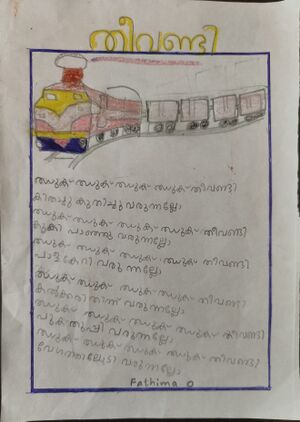 തീവണ്ടി
ഝുക് ഝുക് ഝുക് ഝുക് തീവണ്ടി
കിതച്ചു കുതിച്ചു വരുന്നല്ലോ
ഝുക് ഝുക് ഝുക് ഝുക് തീവണ്ടി
കൂകി പാഞ്ഞു വരുന്നല്ലോ
ഝുക് ഝുക് ഝുക് ഝുക് തീവണ്ടി
വരുന്നല്ലോ
ഝുക് ഝുക് ഝുക് ഝുക് തീവണ്ടി
കൽക്കരി തിന്ന് വരുന്നല്ലോ
ഝുക് ഝുക് ഝുക് ഝുക് തീവണ്ടി
പുക തുപ്പി വരുന്നല്ലോ
ഝുക് ഝുക് ഝുക് ഝുക് തീവണ്ടി
വരുന്നല്ലോ
Fathima O